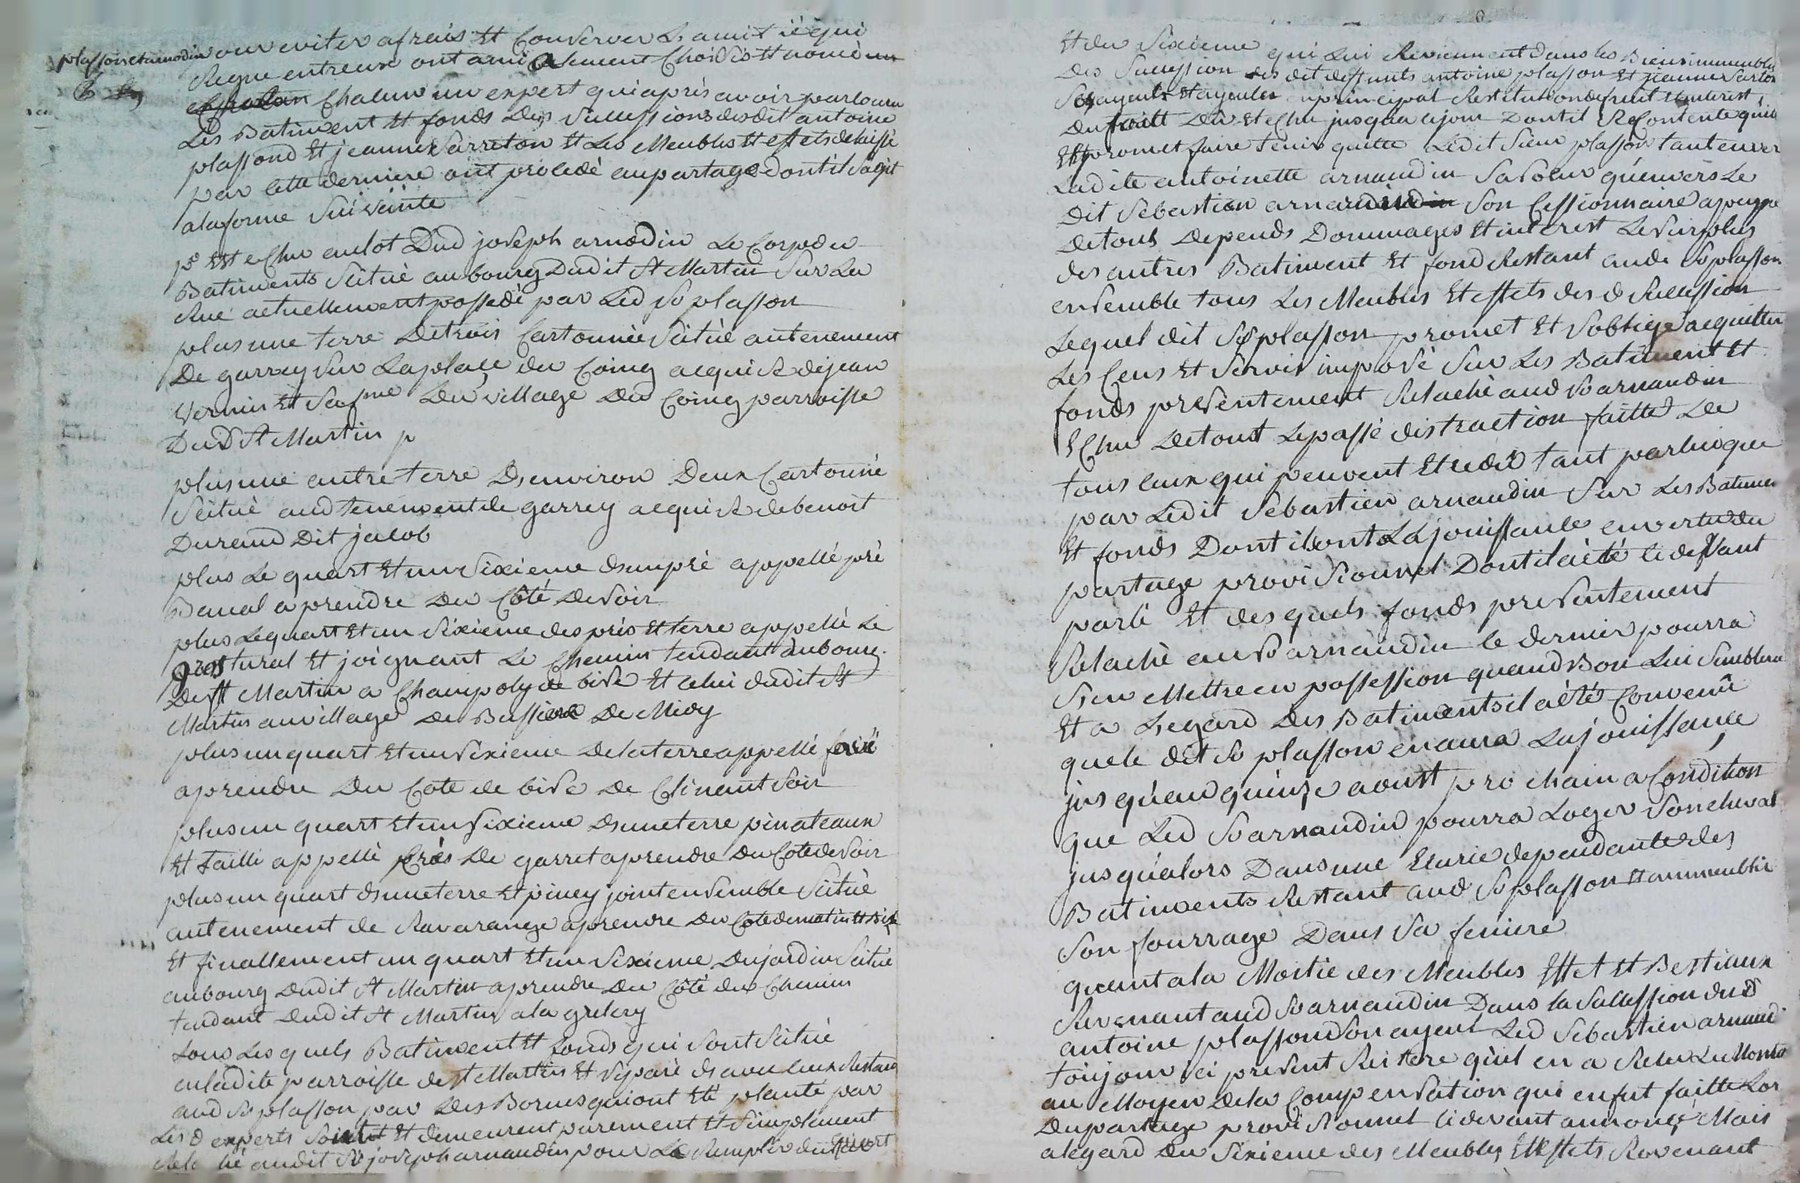 plasson et arnodin pour eviter afrais Et Conserver L'amitié qui
Regne entreux ont amiablement Choisis Et nomé un
Chaluv un expert qui aprés avoir parcouru
Les Batiment Et fonds Des Successions desdit antoine
plassond Et jeanne Sarreton Et Les Meubles Et effets delaissé
par Cette derniere ont procedé au partage Dont il s'agit
a la forme Suivante
p° Est echu au lot Dud joseph arnodin Le Corps de
Batiments Scitué au bourg Dudit St Martin Sur La
Rue actuellement possedé par Led Sr plasson
plus une terre De trois Cartonnée Scitué au tenement
De garrey Sur La place du Coing acquis de jean
Vernin Et Sa fme Du village Du Coing parroisse
Dud St Martin
plus une autre terre D'environ Deux Cartonné
Scitué aud tenement de garrey acquis de benoit
Durand Dit jacob
plus Le quart Et un Sixieme d'un pré appellé pré
Banal a prendre Du Côté De Soir
plus Le quart Et un Sixieme des prés Et terre appellé Le
gros tural Et joignant Le Chemin tendant du bourg
De St Martin a Champoly de bise Et Celui dudit St
Martin au village De Bussiere De Midy
plus un quart Et un Sixieme De la terre appellé
a prendre Du Cote de bise De Clinant Soir
plus un quart Et un Sixieme d'une terre pinateaux
Et Tailli appellé Crès De garret a prendre Du Cote de Soir
plus un quart d'une terre Et piney joint ensemble Scitué
au tenement de Ravarange a prendre Du Cote de matin Et Bise
Et finallement un quart Et un Sixieme Du jardin Scitué
au bourg Dudit St Martin a prendre Du Côté du Chemin
tendant Dudit St Martin a la grélery
Tous Les quels Batiment Et fonds qui Sont Scitué
en ladite parroisse de St Martin Et Séparé d'avec Ceux Restant
aud Sr plasson par Des Bornes qui ont Eté planté par
Les d experts Sont Et demeurent purement Et Simplement
Relaché audit Sr joseph arnaudin pour Le Remplir du quart
Et du Sixieme qui Lui Reviennent dans les Biens immeubles
Des Succession des dit deffunts antoine plasson Et jeanne Sarreton
Ses ayeuls Et ayeules principal Restitution de fruit Et interist
Du Et Echu jusqua ce jour Dont il Se Contente qui
Et promet faire tenir quitte Ledit Sieur plasson tant envers
Ladite antoinette arnaudin Sa Soeur qu'envers Le
Dit Sébastien arnaudin Son Cessionnaire a peine
De tous depends Dommages Et interist Le Surplus
des autres Batiment Et fond Restant aude Sr plasson
ensemble tous Les Meubles Et effets des d Succession
Lequel dit Sr plasson promet Et S'oblige acquitter
Les Cens Et Servis imposé Sur Les Batiment Et
fonds presentement Relaché aud Sr arnaudin
Echu De tout Le passé distraction faitte De
tous Ceux qui peuvent Etre dû tant par lui que
par Ledit Sébastien arnaudin Sur Les Batiment
Et fonds Dont il ont La jouissance en vertu du
partage provisionnel Dont il a été Ci devant
parlé Et des quels fonds presentement
Relaché au Sr arnaudin Ce dernier pourra
S'en Mettre en possession quand Bon Lui Semblera
Et a L'egard Des Batiments il a été Convenû
que le dit Sr plasson en aura La jouissance
jus qu'au quinze aoust prochain a Condition
que Led Sr arnaudin pourra Loger Son cheval
jusqu'alors Dans une Ecurie dependante des
Batiments Restant aud Sr plasson Et
Son fourrage Dans Sa feniere
quant a la Moitié des Meubles Effet Et Bestiaux
Revenant aud Sr arnaudin Dans la Succession dud
antoine plassond Son ayeul Led Sébastien arnaudin
toujour ici present Reitere qu'il en a Recu Le Montant
au Moyen De la Compensation qui en fut faitte Lor
Du partage provisionnel Ci devant annoncé Mais
a l'egard Du Sixieme des Meubles Et Effets Revenant